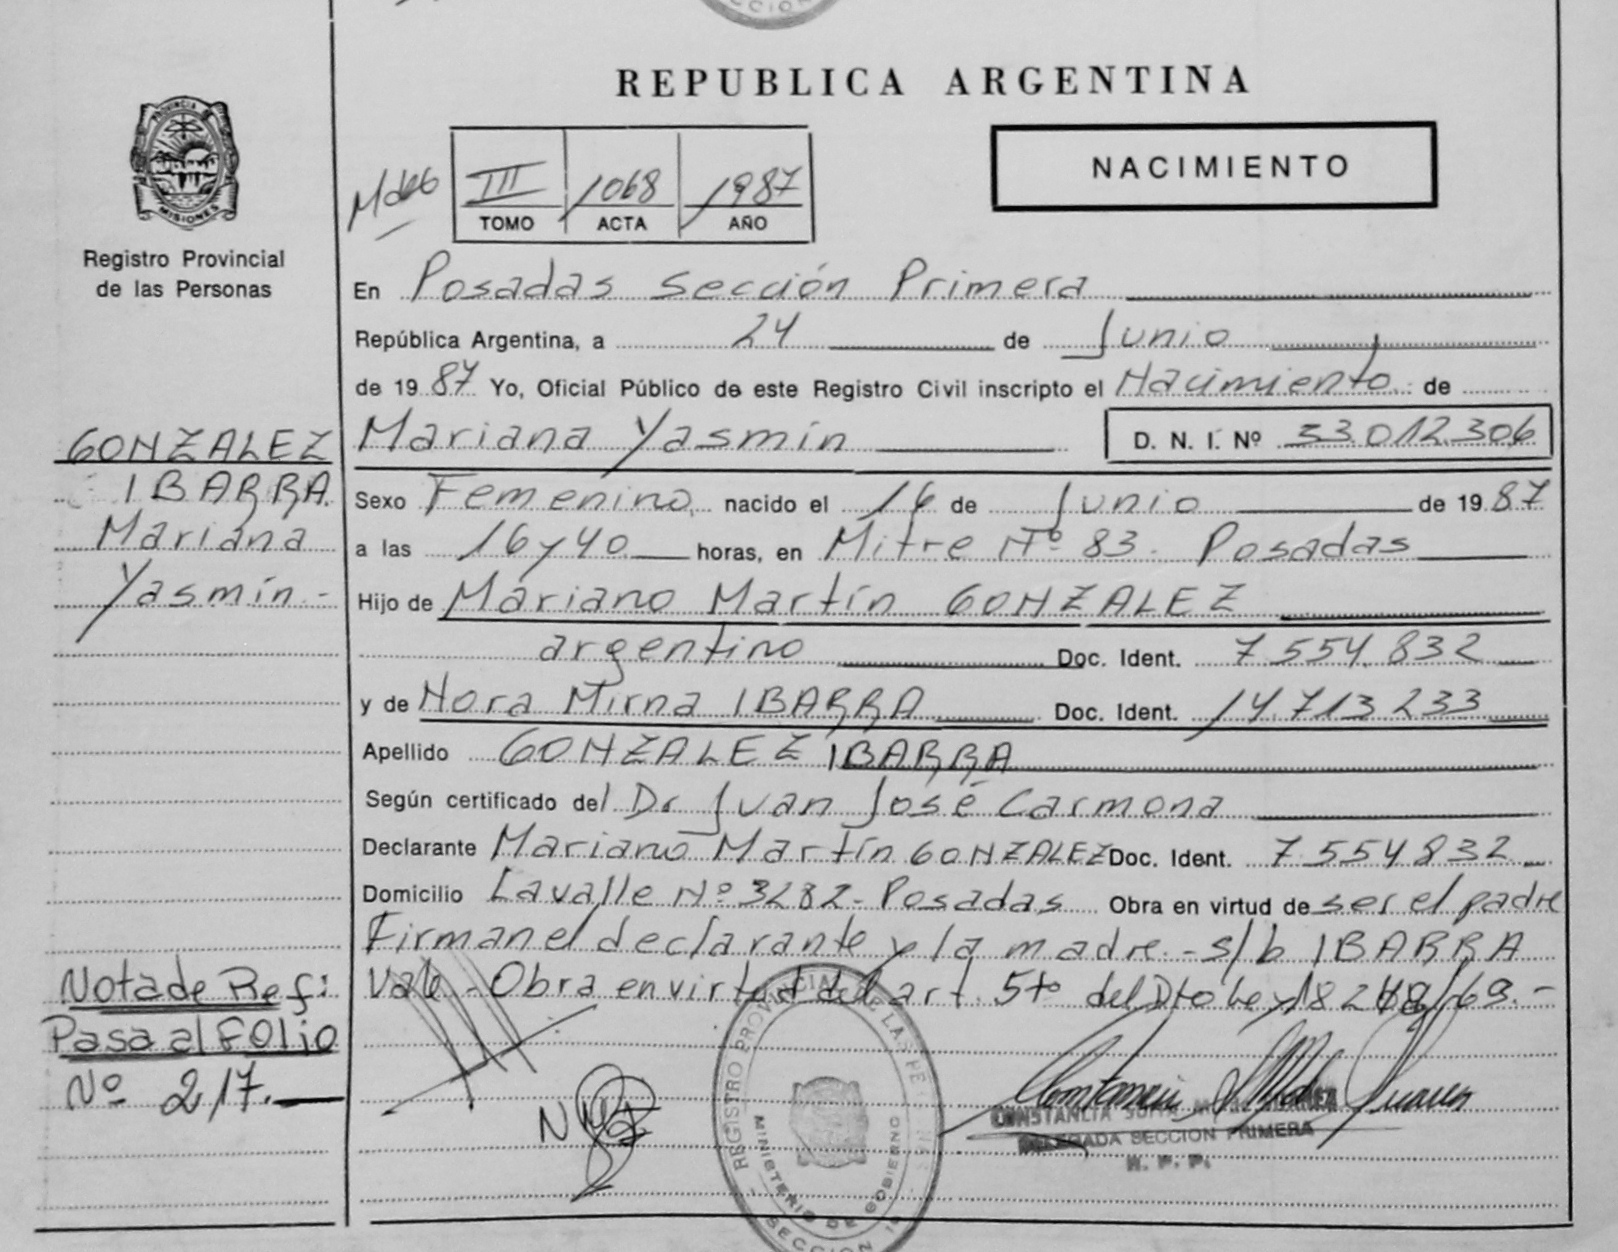 REPUBLICA ARGENTINA
PROVINCIA DE
MISIONES
Registro Provincial
de las Personas
NACIMIENTO
III 1068 1987
TOMO ACTA AÑO
En Posadas Sección Primera
República Argentina, a 24 de Junio
de 1987 Yo, Oficial Público de este Registro Civil inscripto el Nacimiento de
Mariana Yasmín D. N. I. Nº 33.012.306
GONZALEZ
IBARRA
Mariana
Yasmín.-
Sexo Femenino, nacido el 16 de Junio de 1987
a las 16 y 40 horas, en Mitre Nº 83. Posadas
Hijo de Mariano Martín GONZALEZ
argentino Doc. Ident. 7.554.832
y de Nora Mirna IBARRA Doc. Ident. 14.713.233
Apellido GONZALEZ IBARRA
Según certificado del Dr Juan José Carmona
Declarante Mariano Martín GONZALEZ Doc. Ident. 7.554.832
Domicilio Lavalle Nº 3282- Posadas Obra en virtud de ser el padre
Firman el declarante y la madre.- s/b IBARRA
Vale.- Obra en virtud del art. 5to del Dto Ley 18.248/69.-
Nota de Ref:
Pasa al FOLIO
Nº 217.
REGISTRO PROVINCIAL DE LAS PERSONAS
MINISTERIO DE GOBIERNO
SECCION 1ª
CONSTANCIA
DELEGADA SECCION PRIMERA
R. P. P.